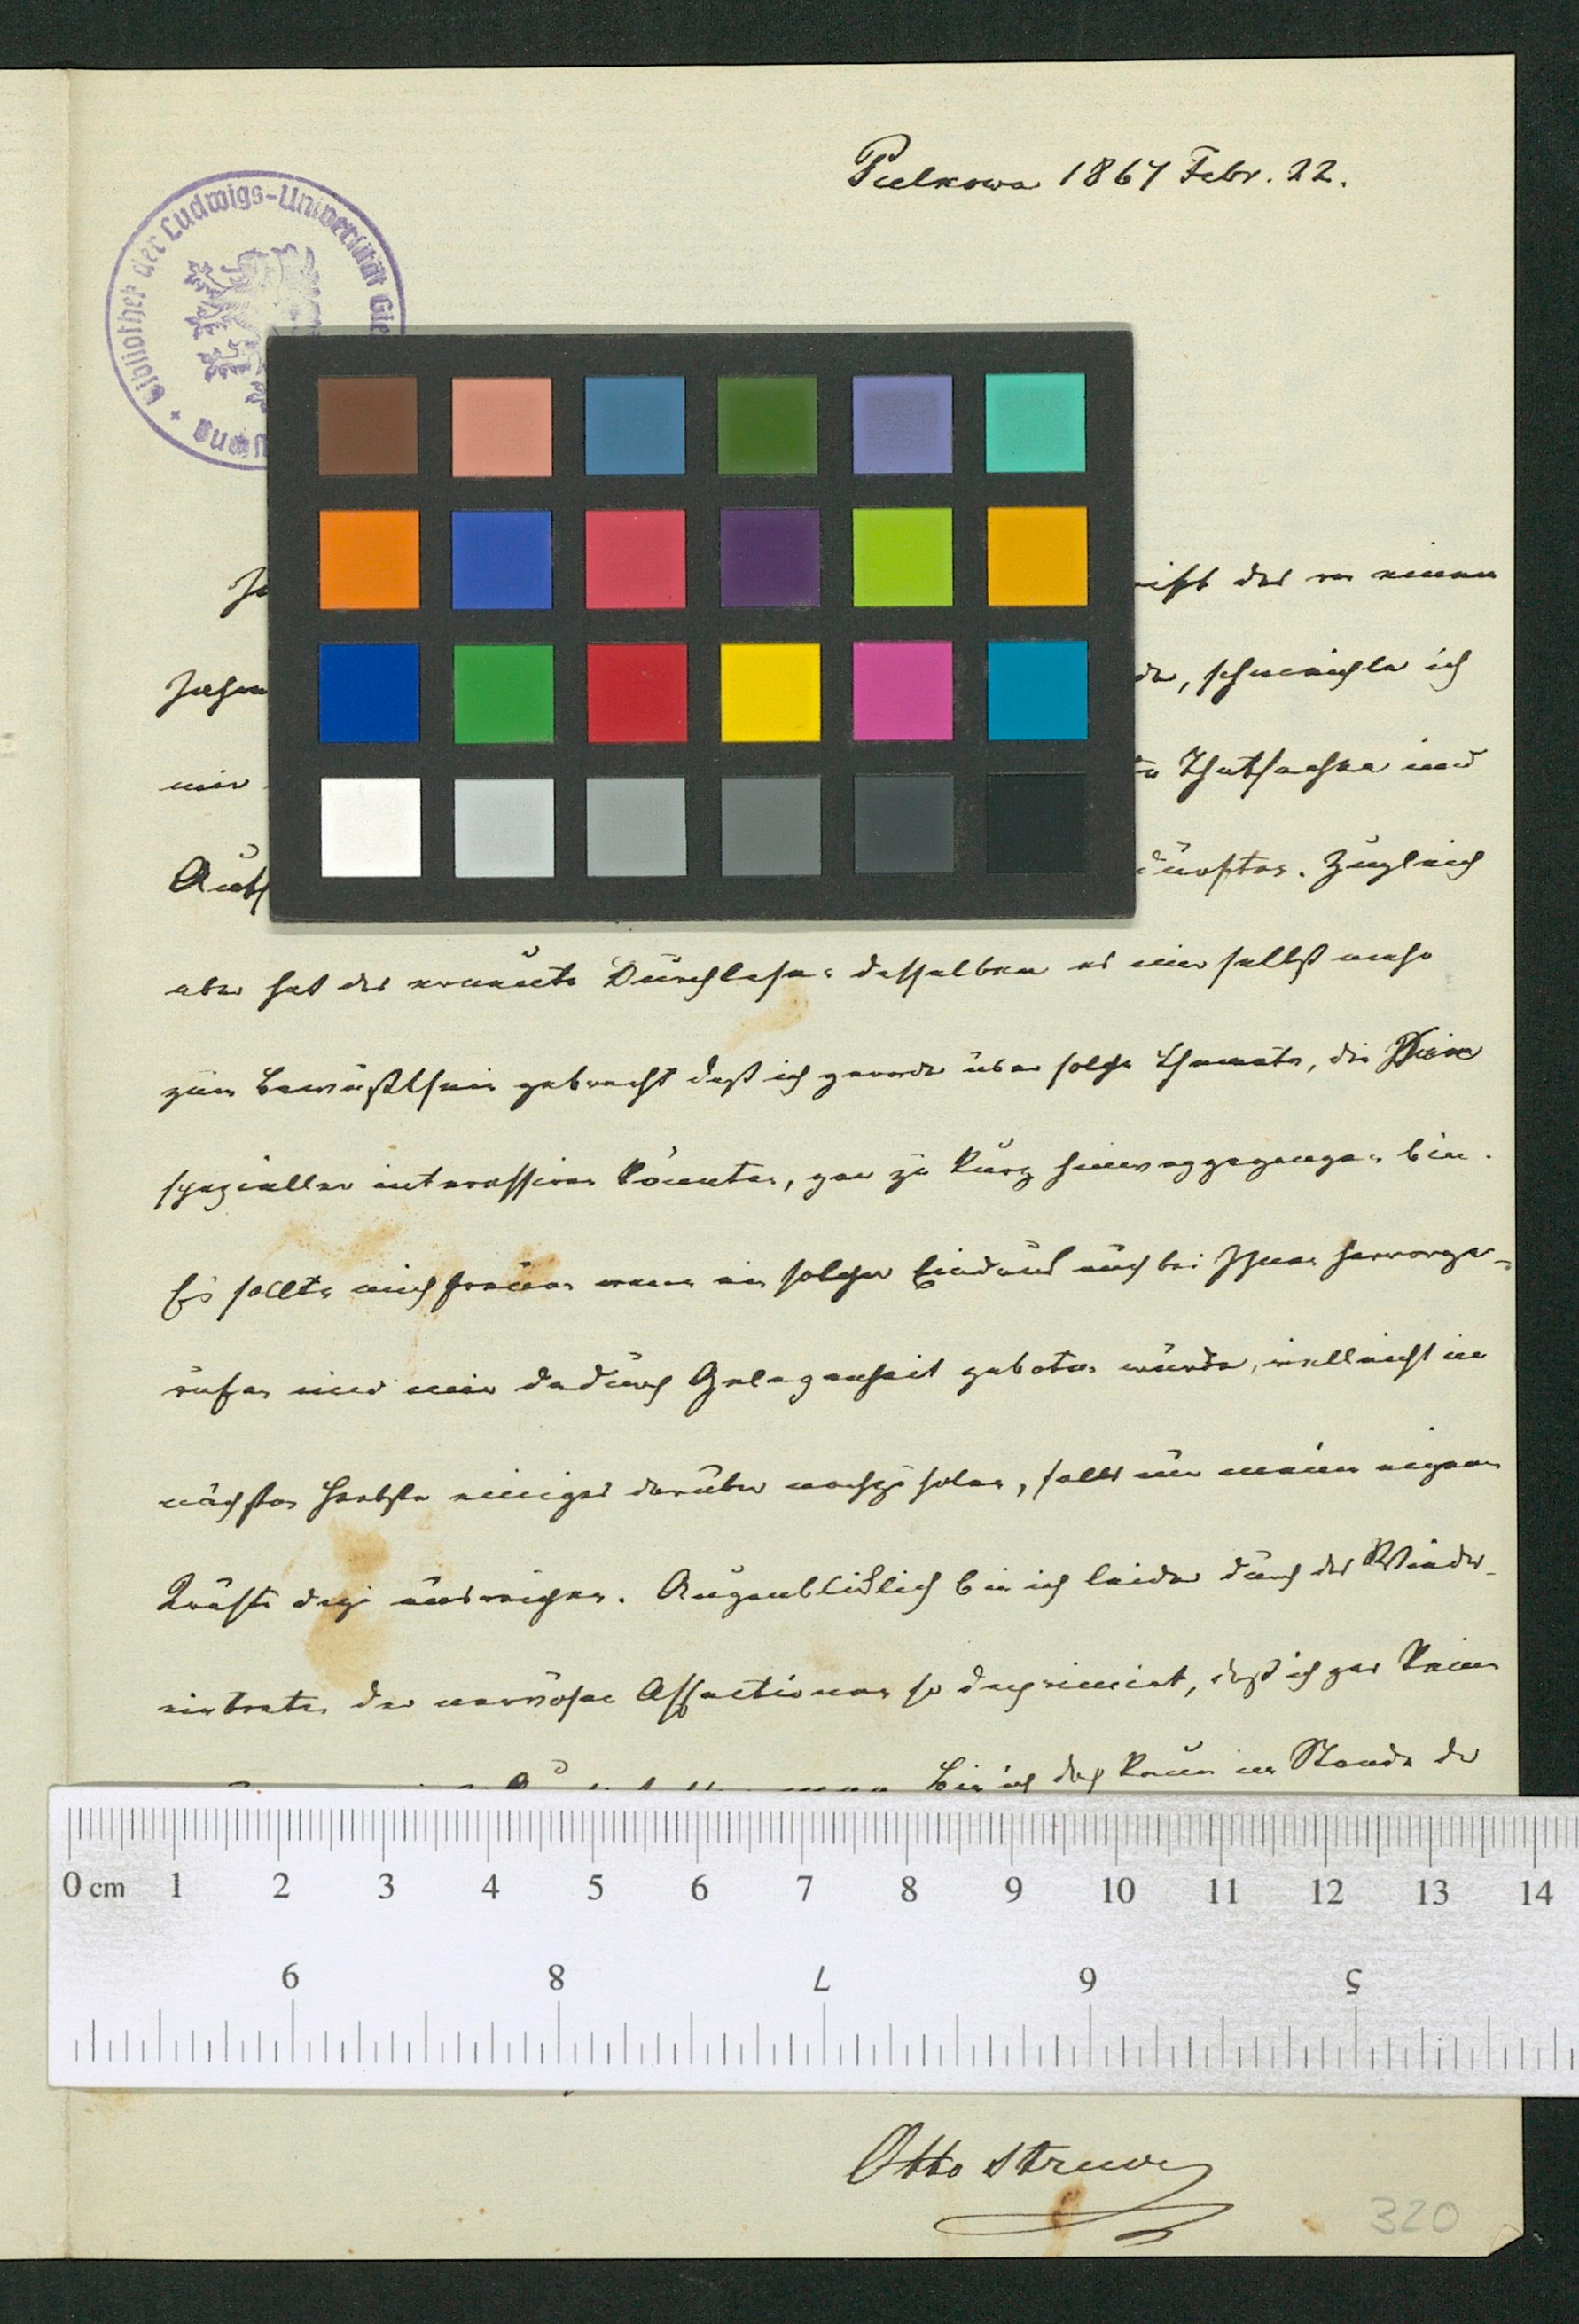 Pulkowa 1867 Febr. 22.
Bibliothek der Ludwigs-Universität Gie
, schmeichle ich
mir Thatsachen und
dürften. Zugleich
aber hat das erneute Durchlesen desselben es mir selbst mehr
zum Bewußtsein gebracht daß ich gerade über solche Themata, die Sie
spezieller interessiren könnten, gar zu kurz hinweggegangen bin.
Es sollte mich freuen wenn ein solcher Eindruck auch bei Ihnen hervorge-
rufen und mir dadurch Gelegenheit geboten würde, vielleicht im
nächsten Herbste einiges darüber nachzuholen, falls nur meine eigenen
Kräfte dazu ausreichen. Augenblicklich bin ich leider durch das Wieder-
eintreten der nervösen Affectionen so deprimirt, daß ich gar keine
bin ich doch kaum im Stande
0 cm 1 2 3 4 5 6 7 8 9 10 11 12 13 14
9 8 7 6 5
Otto Struve
320